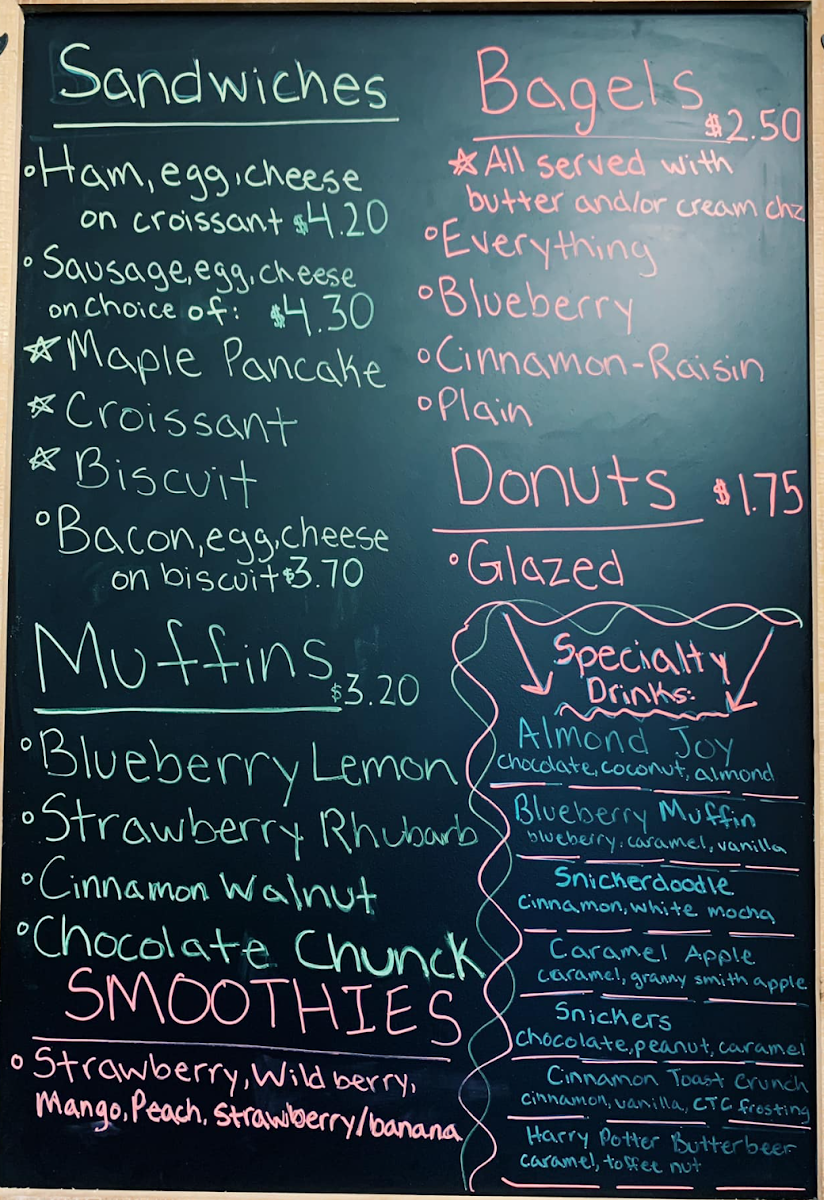 Sandwiches
◦Ham, egg, cheese
on croissant $4.20
◦Sausage, egg, cheese
on choice of: $4.30
☆Maple Pancake
☆Croissant
☆Biscuit
◦Bacon, egg, cheese
on biscuit $3.70
Muffins
$3.20
◦Blueberry Lemon
◦Strawberry Rhubarb
◦Cinnamon Walnut
◦Chocolate Chunck
SMOOTHIES
◦Strawberry, Wildberry,
Mango, Peach, Strawberry/banana
Bagels
$2.50
☆All served with
butter and/or cream chz
◦Everything
◦Blueberry
◦Cinnamon-Raisin
◦Plain
Donuts $1.75
◦Glazed
Specialty
Drinks:
Almond Joy
chocolate, coconut, almond
Blueberry Muffin
blueberry, caramel, vanilla
Snickerdoodle
cinnamon, white mocha
Caramel Apple
caramel, granny smith apple
Snickers
chocolate, peanut, caramel
Cinnamon Toast Crunch
cinnamon, vanilla, CTC frosting
Harry Potter Butterbeer
caramel, toffee nut